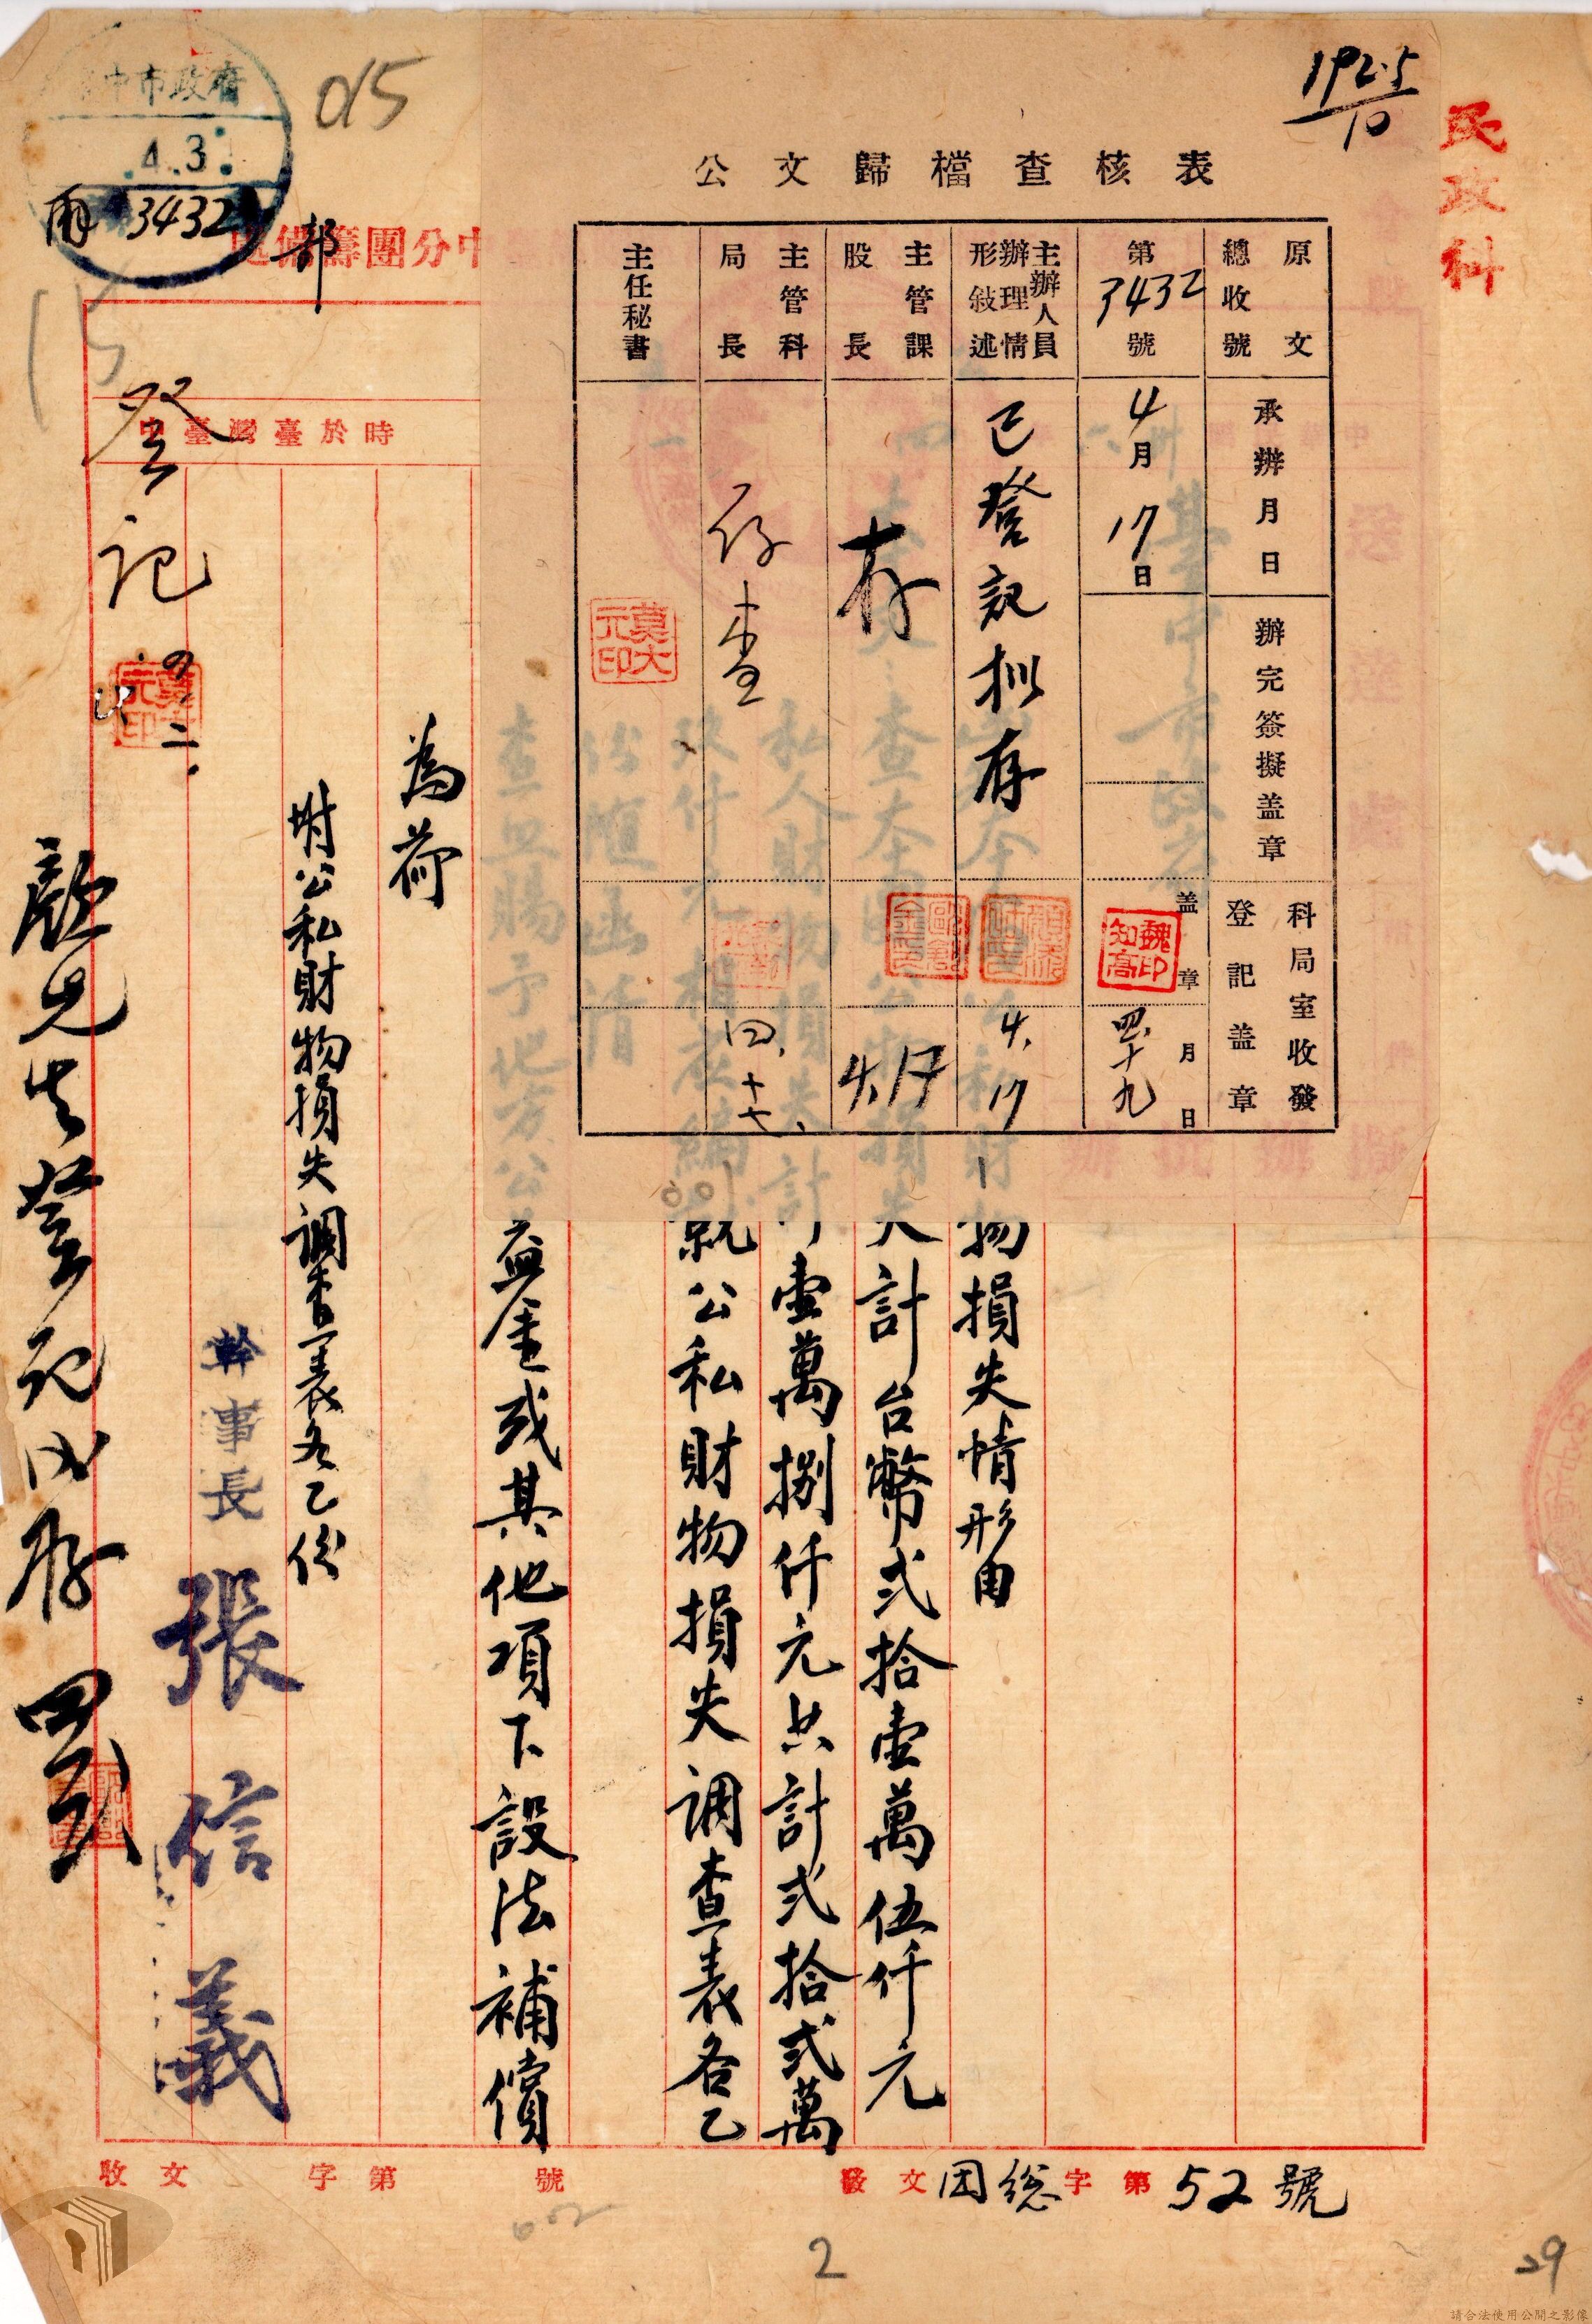 民政科
192.5/10
公文歸檔查核表
原文總收號
承辦月日
辦完簽擬盖章
科局室收發登記盖章
第3432號
4月17日
盖章
魏印知高
月日
四、十九
主辦人員辦理情形敍述
已登記擬存
4.17
主管課股長
存
4.17
主管科局長
存查
四、十七、
主任秘書
莫大元印
601
中市政府
4.3
3432
d15
15
中分團籌備
部
時於臺灣臺中
物損失情形由
失計台幣弍拾壹萬伍仟元
壹萬捌仟元共計弍拾弍萬
就公私財物損失調查表各乙
益金或其他項下設法補償
為荷
附公私財物損失調查表各乙份
幹事長 張信義
登記
莫大元印
四、二、
顧先生登記後存
發文团總字第52號
收文 字第 號
602
2
29
請合法使用公開之影像